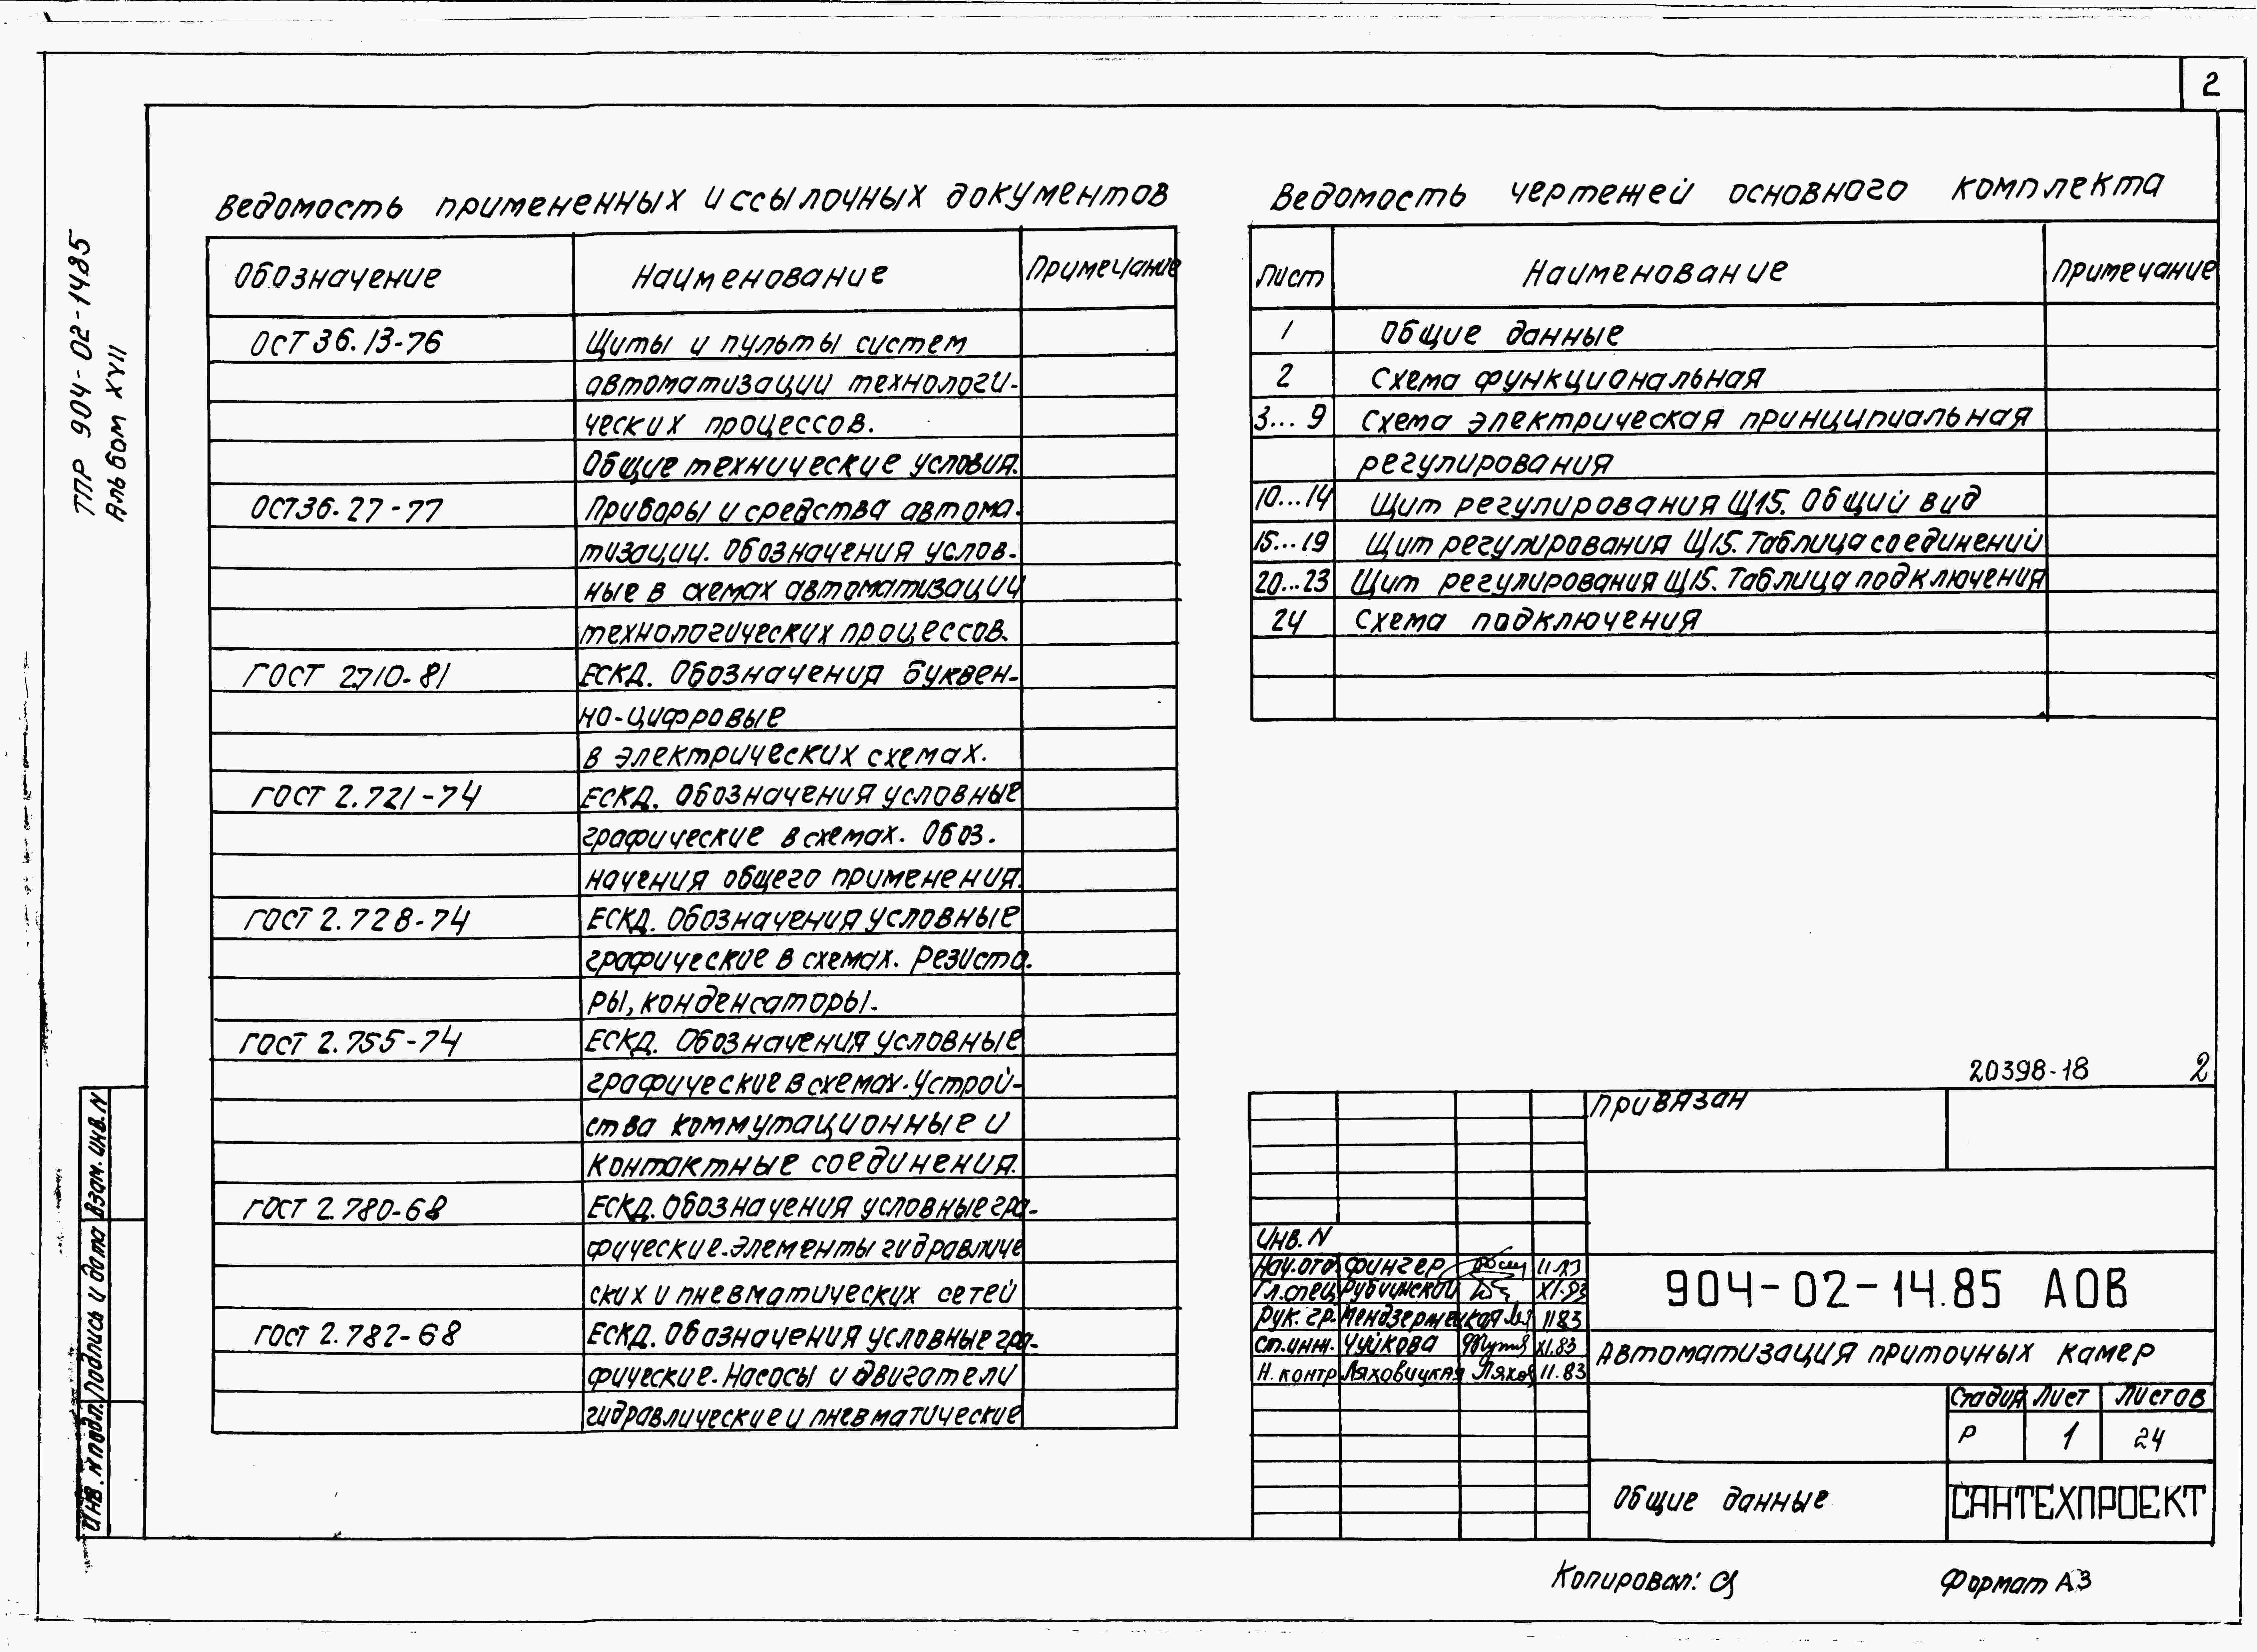 2
ТПР 904-02-14.85
Альбом XVII
Ведомость примененных и ссылочных документов
Обозначение Наименование Примечание
ОСТ 36.13-76 Щиты и пульты систем
автоматизации технологи-
ческих процессов.
Общие технические условия.
ОСТ 36.27-77 Приборы и средства автома-
тизации. Обозначения услов-
ные в схемах автоматизации
технологических процессов.
ГОСТ 2.710-81 ЕСКД. Обозначения буквен-
но-цифровые
в электрических схемах.
ГОСТ 2.721-74 ЕСКД. Обозначения условные
графические в схемах. Обоз-
начения общего применения.
ГОСТ 2.728-74 ЕСКД. Обозначения условные
графические в схемах. Резисто-
ры, конденсаторы.
ГОСТ 2.755-74 ЕСКД. Обозначения условные
графические в схемах. Устрой-
ства коммутационные и
контактные соединения.
ГОСТ 2.780-68 ЕСКД. Обозначения условные гра-
фические. Элементы гидравличе
ских и пневматических сетей
ГОСТ 2.782-68 ЕСКД. Обозначения условные гра-
фические. Насосы и двигатели
гидравлические и пневматические
Ведомость чертежей основного комплекта
Лист Наименование Примечание
1 Общие данные
2 Схема функциональная
3...9 Схема электрическая принципиальная
регулирования
10...14 Щит регулирования Щ15. Общий вид
15...19 Щит регулирования Щ15. Таблица соединений
20...23 Щит регулирования Щ15. Таблица подключения
24 Схема подключения
20398-18 2
Привязан
Инв. N
Нач. отд. Фингер 11.83
Гл. спец. Рубчинский XI.83
Рук. гр. Мендзержецкая 11.83
Ст. инж. Чуйкова XI.83
Н. контр Ляховицкая Ляхов 11.83
904-02-14.85 АОВ
Автоматизация приточных камер
Стадия Лист Листов
Р 1 24
Общие данные
САНТЕХПРОЕКТ
Инв. N подл. Подпись и дата Взам. инв. N
Копировал:
Формат А3